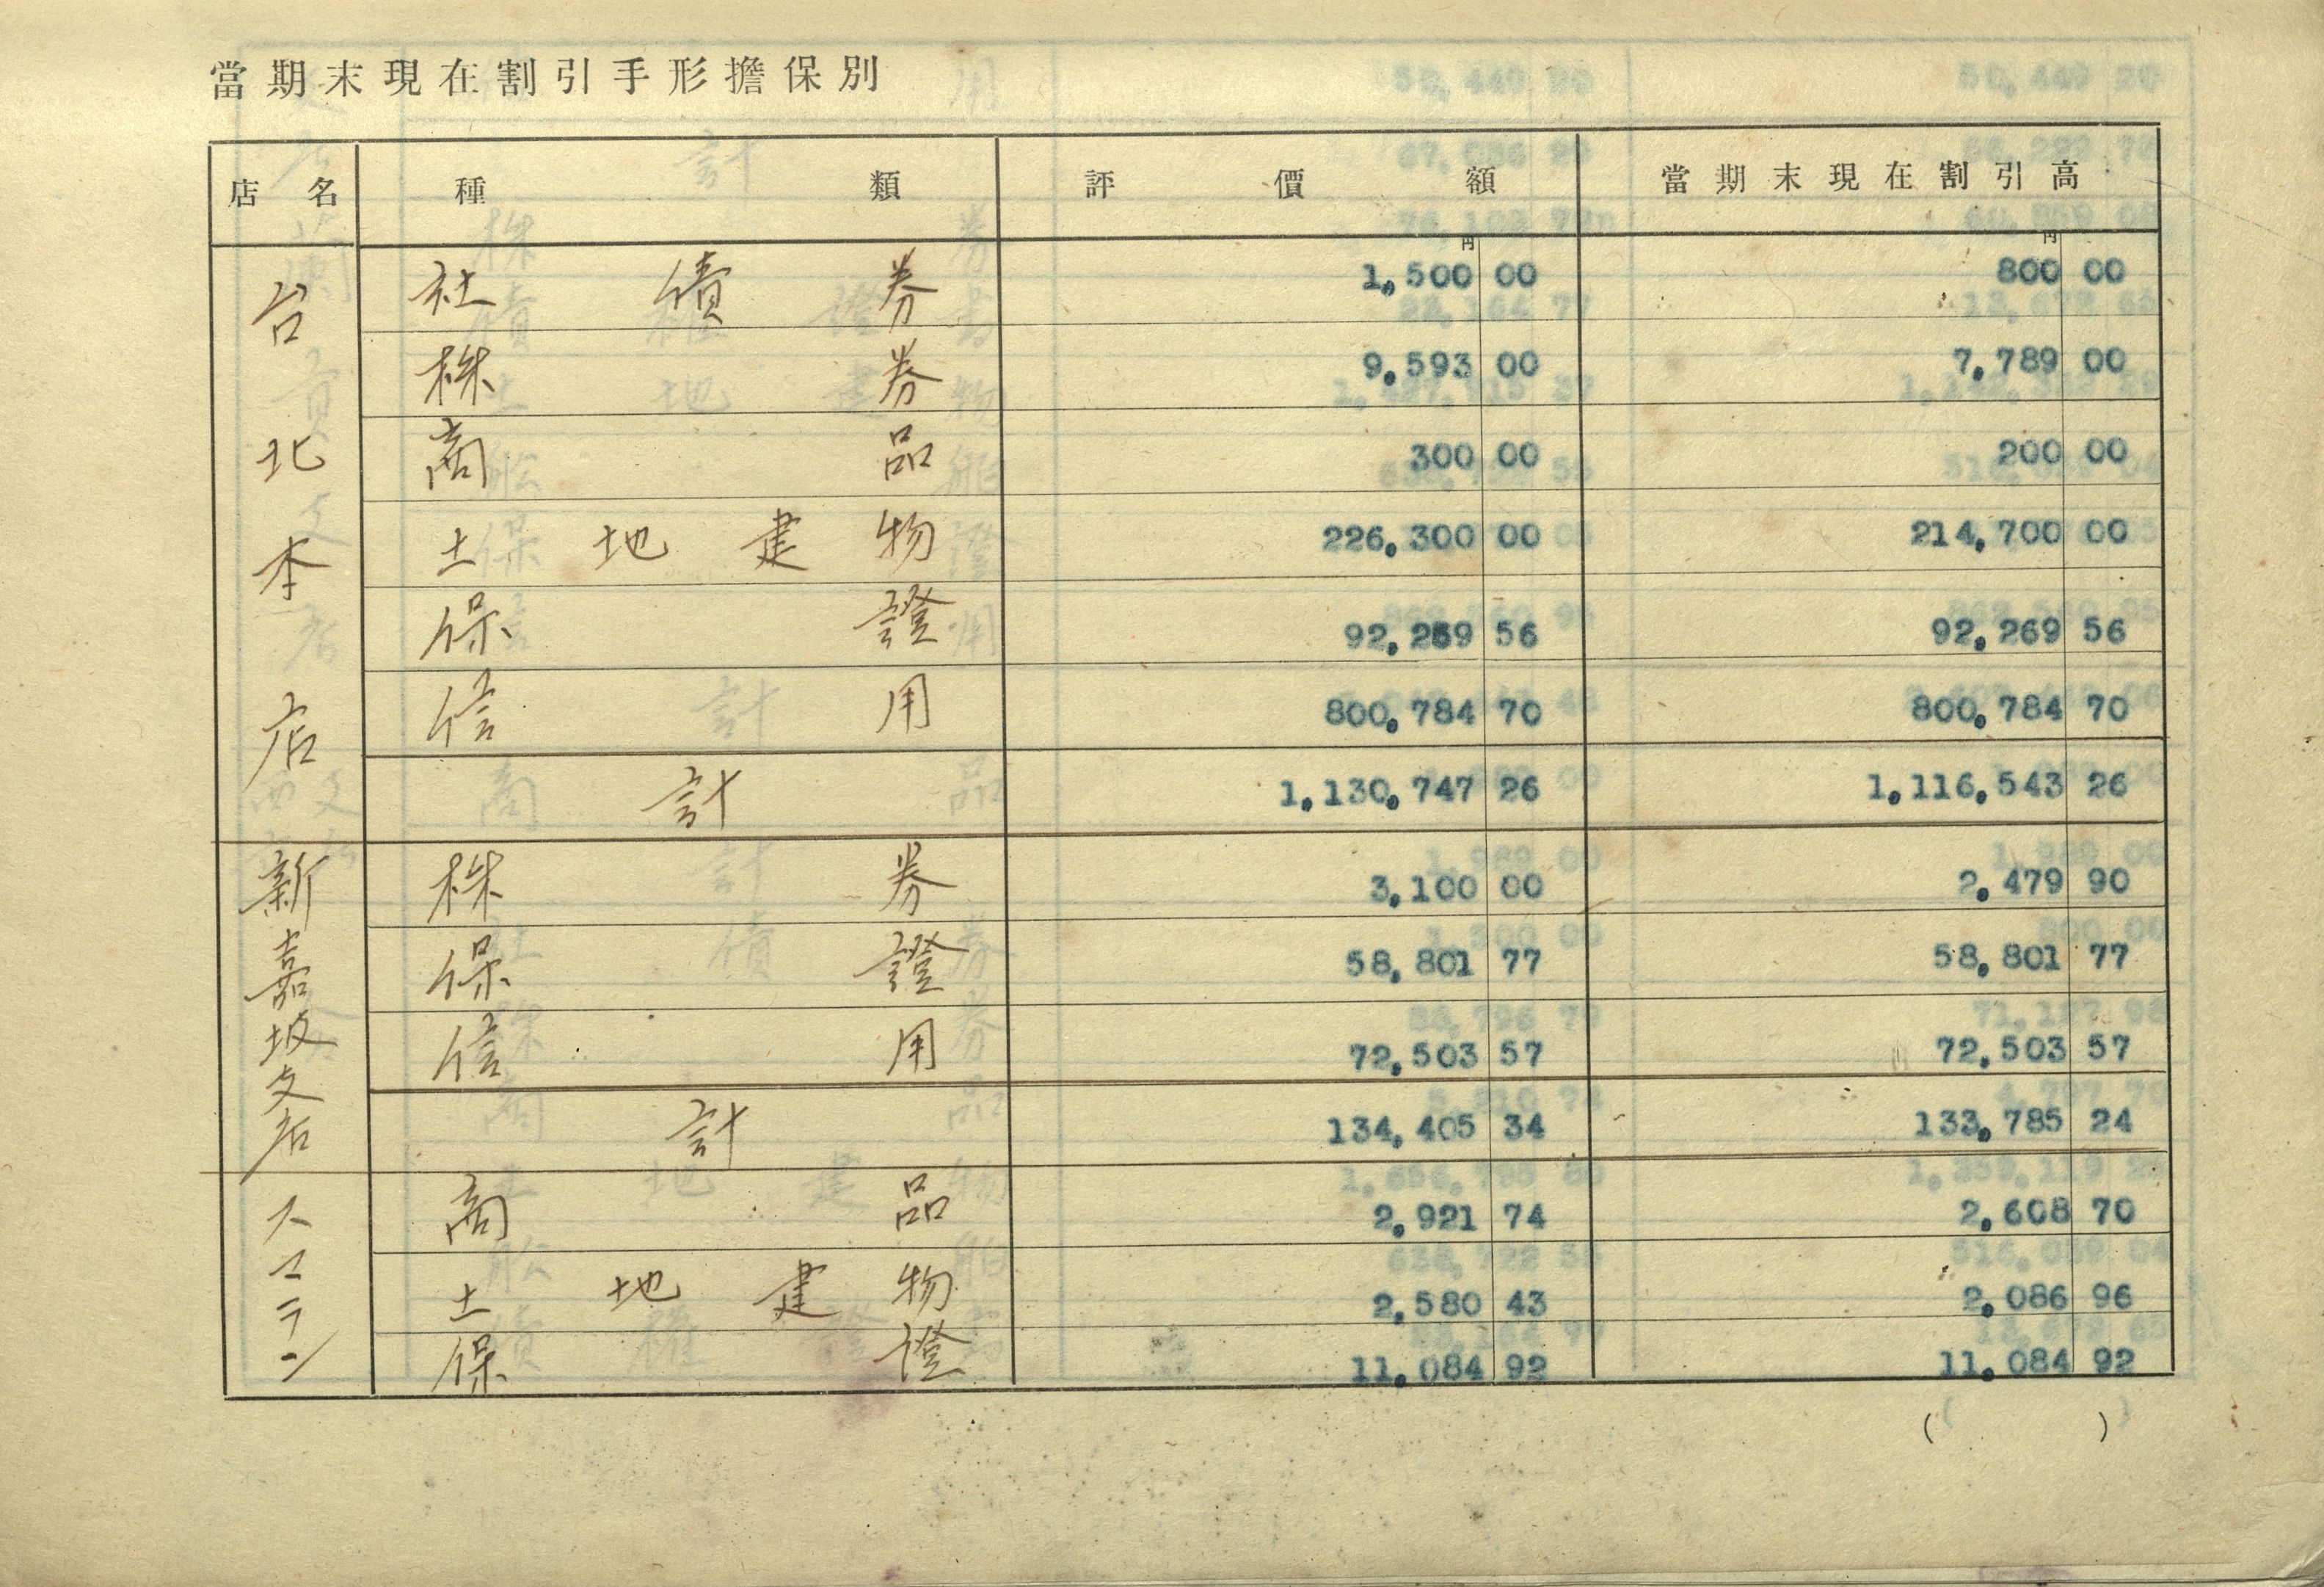 當期末現在割引手形擔保別
店名 種類 評價額 當期末現在割引高
円 円
台北本店 社債券 1,500 00 800 00
株券 9,593 00 7,789 00
商品 300 00 200 00
土地建物 226,300 00 214,700 00
保證 92,269 56 92,269 56
信用 800,784 70 800,784 70
計 1,130,747 26 1,116,543 26
新嘉坡支店 株券 3,100 00 2,479 90
保證 58,801 77 58,801 77
信用 72,503 57 72,503 57
計 134,405 34 133,785 24
スマラン 商品 2,921 74 2,608 70
土地建物 2,580 43 2,086 96
保證 11,084 92 11,084 92
( )